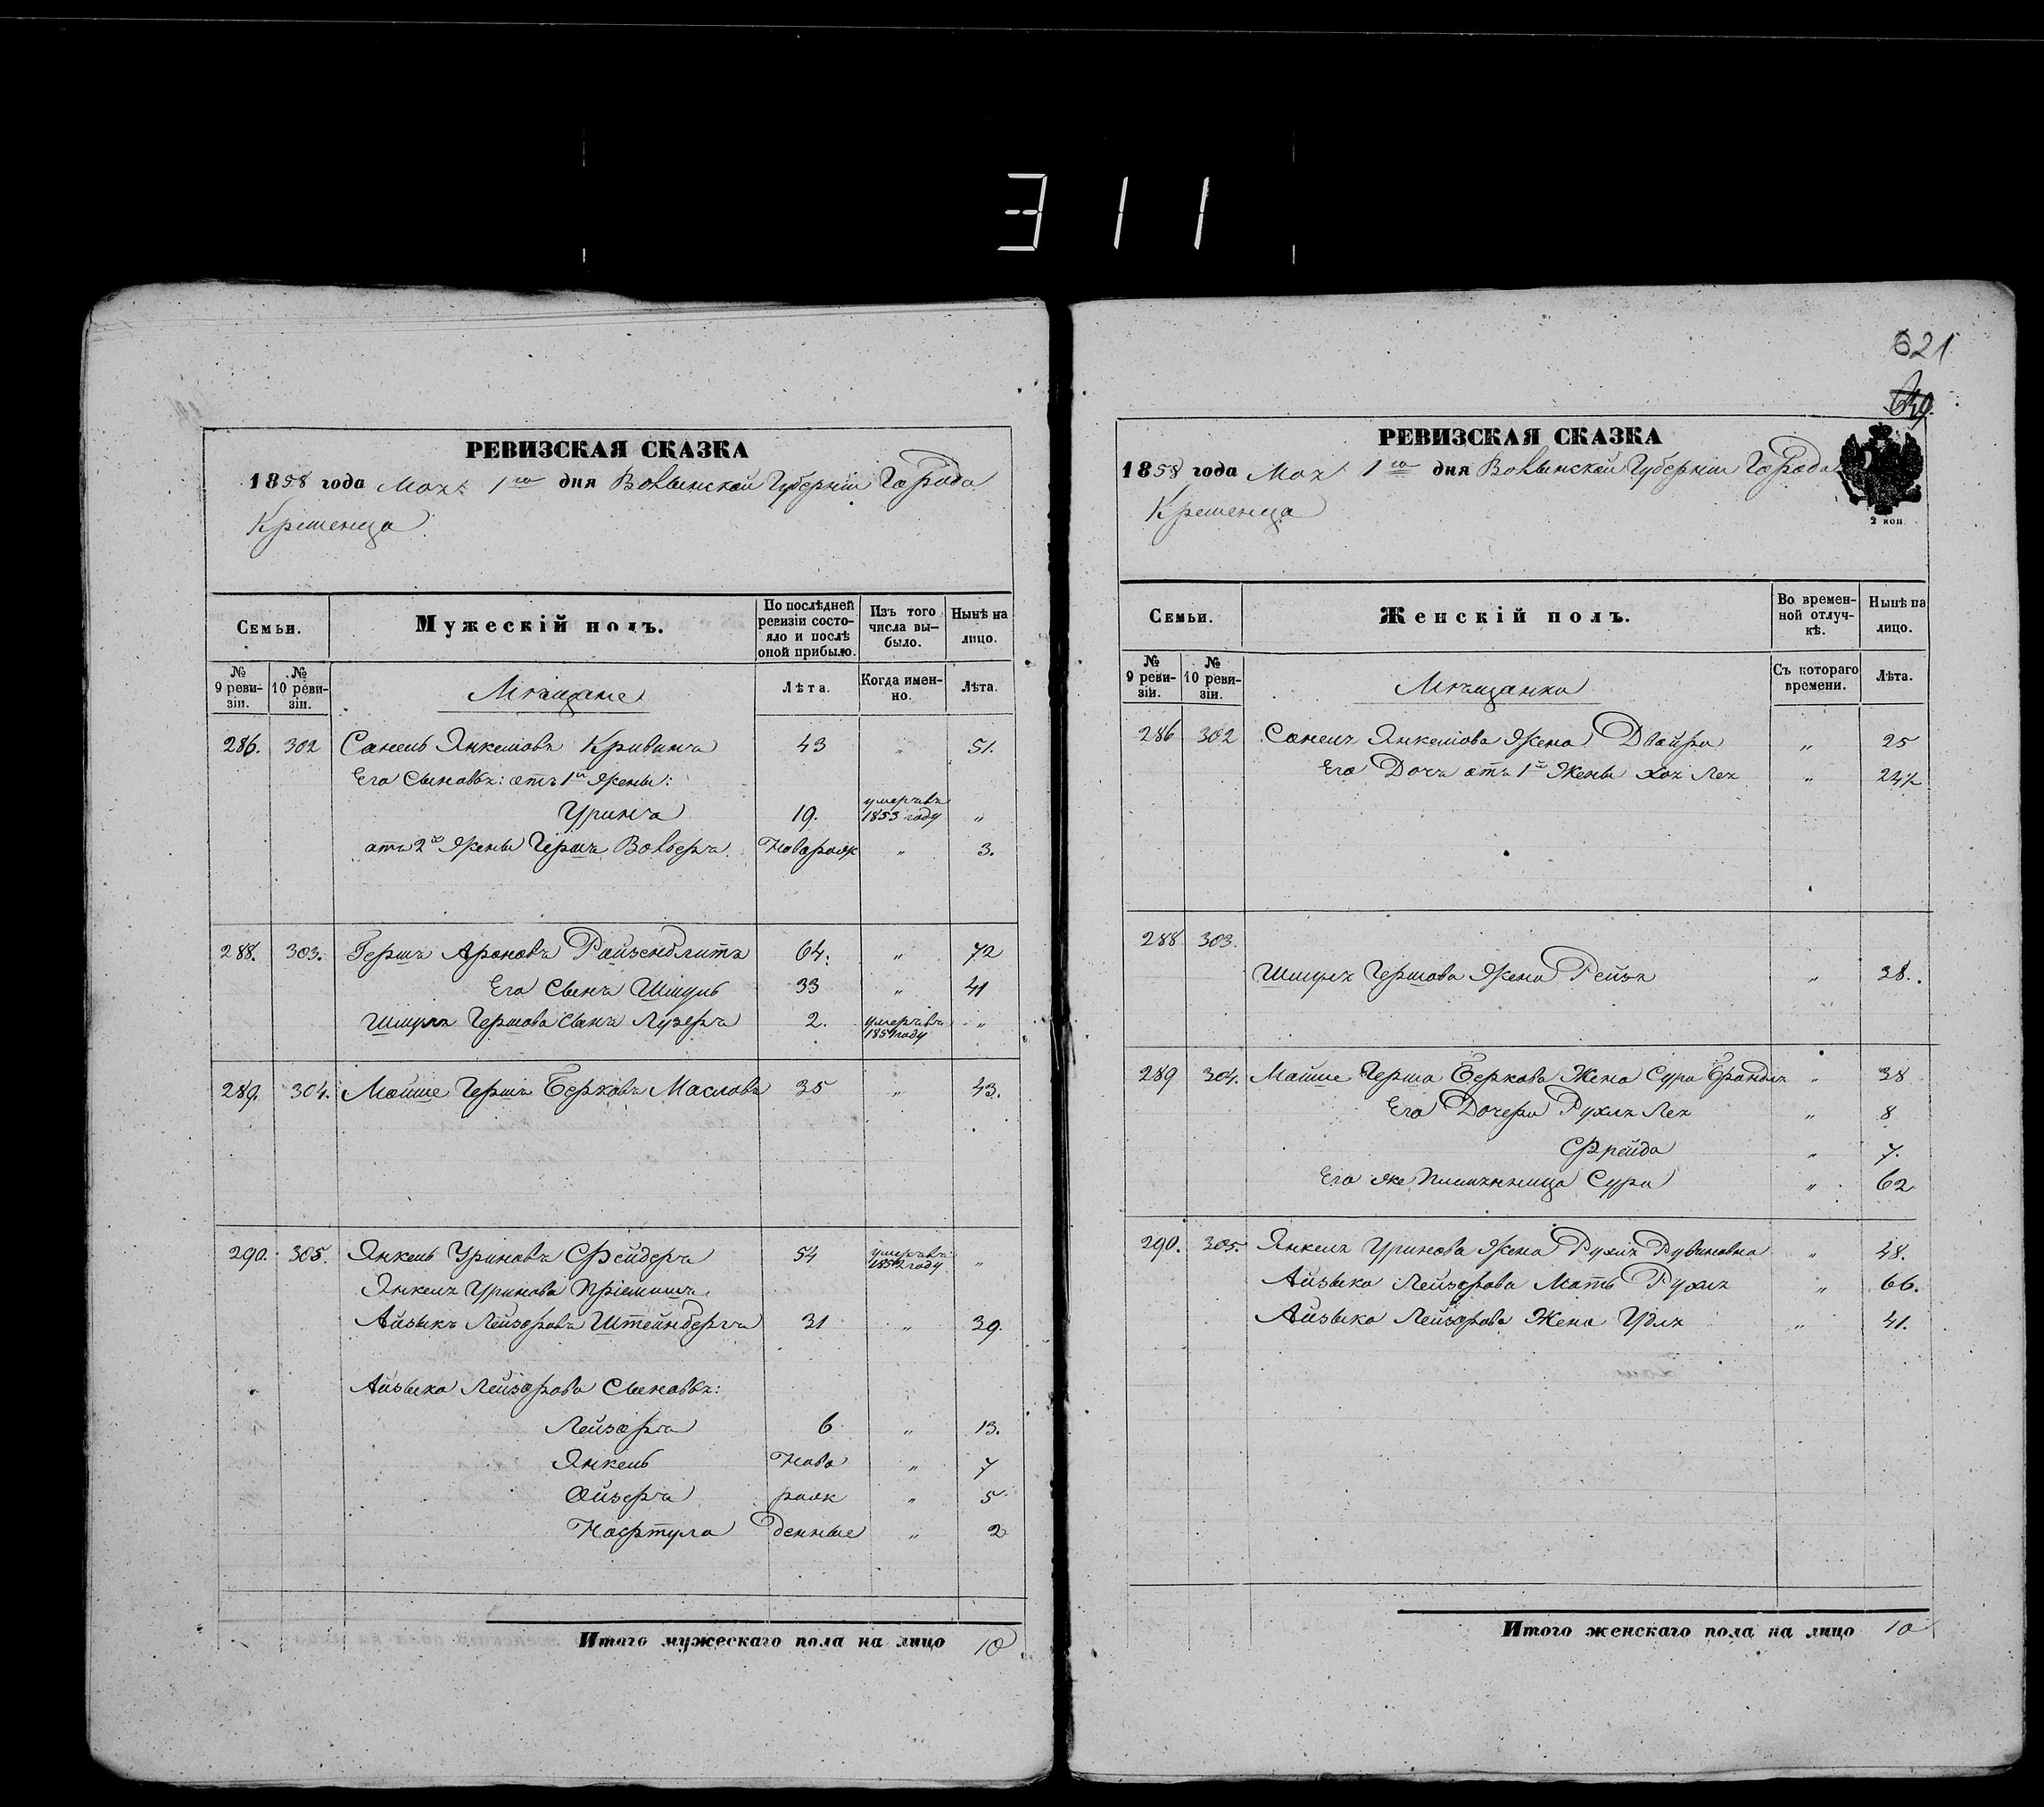 311
РЕВИЗСКАЯ СКАЗКА
1858 года Мая 1го дня Волынской Губерніи Города
Кременца
Семьи.
Мужескій полъ.
По послѣдней ревизіи состояло и послѣ оной прибыло.
Изъ того числа выбыло.
Нынѣ на лицо.
№ 9 ревизіи.
№ 10 ревизіи.
Мѣщане
Лѣта.
Когда именно.
Лѣта.
286. 302 Санель Янкелiовъ Кривинъ 43 " 51.
Его Сыновья: отъ 1й Жены:
Уринъ 19. умеръ въ 1853 году "
отъ 2й Жены Гершъ Вольеръ Новорож " 3.
288. 303. Гершъ Ароновъ Ройзенблитъ 64. " 72
Его Сынъ Шмуль 33 " 41
Шмуля Гершова Сынъ Лузеръ 2. умеръ въ 1854 году "
289. 304. Мойше Гершъ Берковъ Масловъ 35 " 43.
290. 305. Янкель Уриновъ Фейдеръ 54 умеръ въ году "
Янкеля Уринова Пріемышъ
Айзыкъ Лейзоровъ Штейнбергъ 31 " 39.
Айзыка Лейзорова Сыновья:
Лейзоръ 6 " 13.
Янкель Ново " 7
Ойзеръ рож " 5
Нафтула денные " 2
Итого мужескаго пола на лицо 10
621
РЕВИЗСКАЯ СКАЗКА
1858 года Мая 1го дня Волынской Губерніи Города
Кременца
2 коп.
Семьи.
Женскій полъ.
Во временной отлучкѣ.
Нынѣ на лицо.
№ 9 ревизіи.
№ 10 ревизіи.
Мѣщанки
Съ котораго времени.
Лѣта.
286 302 Санеля Янкелiова Жена Двойра " 25
Его Дочь отъ 1й Жены Хая Лея " 24½
288 303.
Шмуля Гершова Жена Рейзя " 38.
289 304. Мойше Герша Беркова Жена Сура Брандля " 38
Его Дочери Рухля Лея " 8
Фрейда " 7.
Его же Племянница Сура " 62
290. 305. Янкеля Уринова Жена Рухля Рувиновна " 48.
Айзыка Лейзорова Мать Рухля " 66.
Айзыка Лейзорова Жена Удля " 41.
Итого женскаго пола на лицо 10